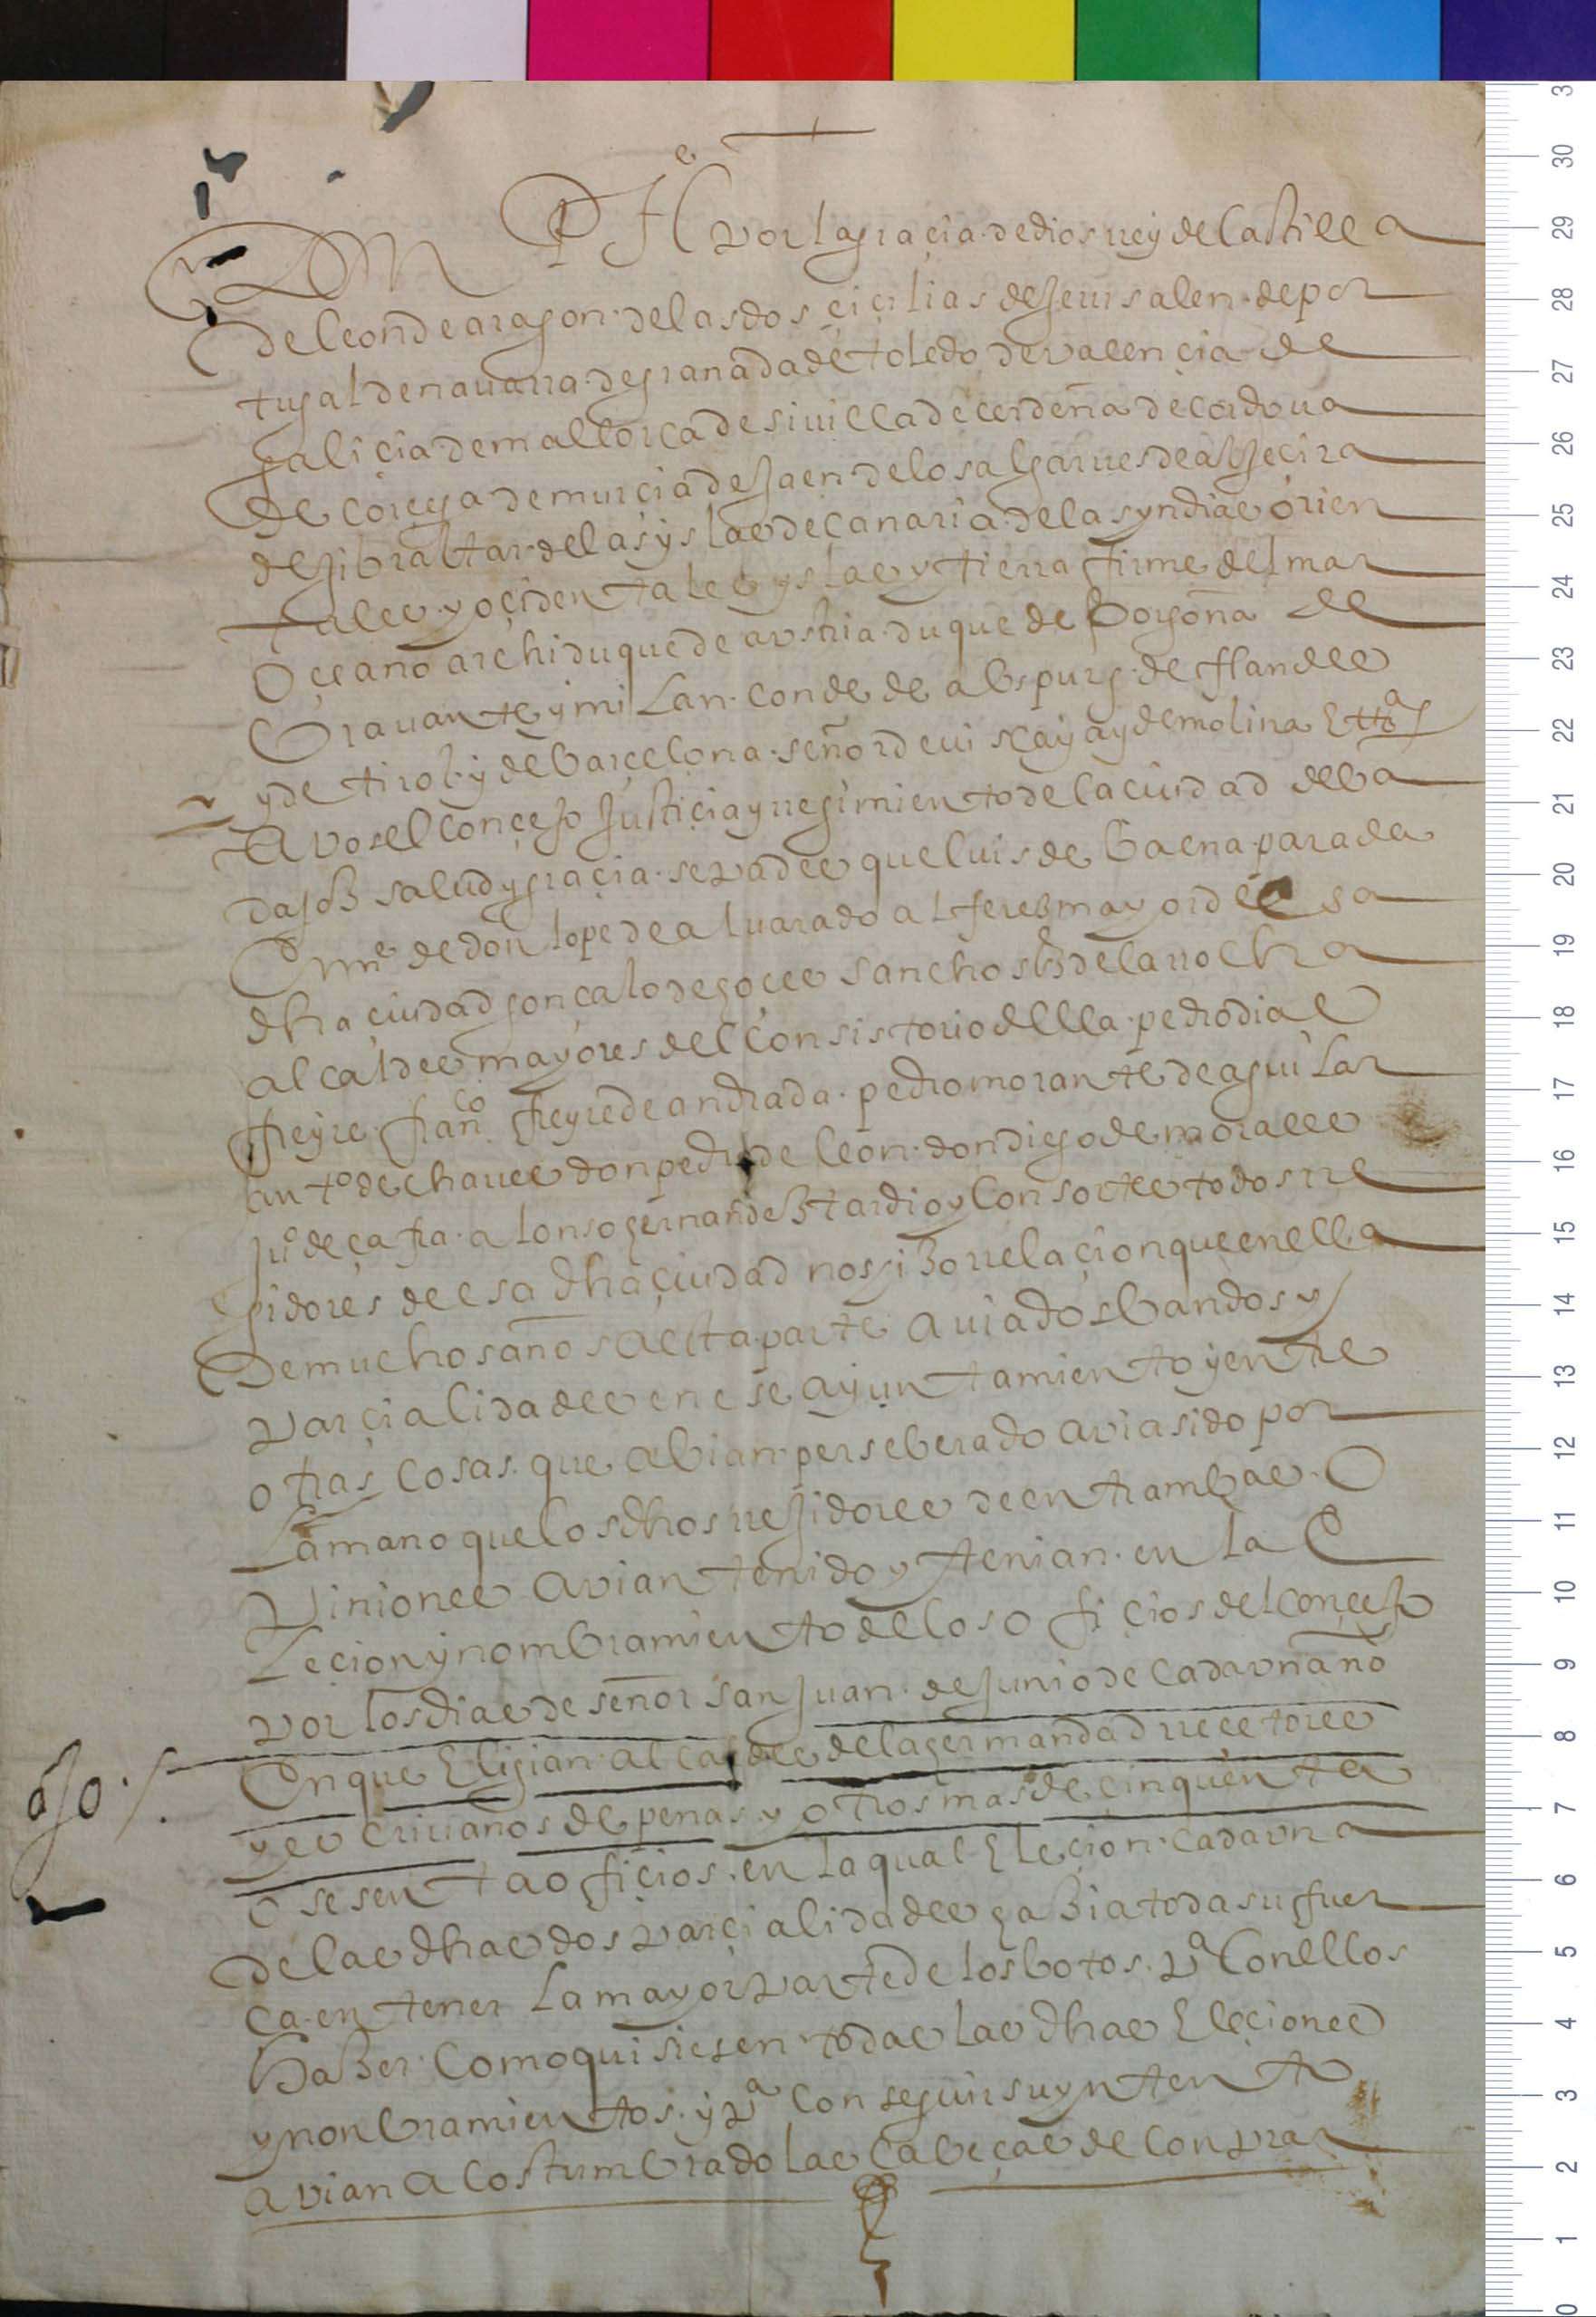 Don Phe por la graçia de dios rrey de Castilla
de leon de aragon de las dos çiçilias de Jerusalen de por
tugal de nauarra de granada de toledo de valençia de
galiçia de mallorca de seuilla de cerdeña de cordoua
de corcega de murçia de Jaen de los algarues de algecira
de gibraltar de las yslas de canaria de las yndias orien
tales y oçidentales yslas y tierra firme del mar
oçeano archiduque de austria duque de borgoña de
brauante y milan conde de abspurg de flandes
y de tirol y de barçelona señor de uiscaya y de molina Ettª
A vos el conçejo Justiçia y rregimiento de la ciudad de ba
dajoz salud y graçia sepades que luis de baena parada en
nre de don lope de aluarado alferez mayor de esa
dha çiudad gonçalo de goçes sancho sz de la rrocha
alcaldes mayores del consistorio della pedro dias
freyre franco freyre de andrada pedro morante de aguilar
anto de chaues don pedro de leon don diego de morales
juo de çafra alonso hernandez tardio y consortes todos rre
gidores de esa dha çiudad nos hizo rrelaçion que en ella
de muchos años a esta parte auia dos bandos y
parçialidades en ese ayuntamiento y entre
otras cosas que abian perseberado avia sido por
la mano que los dhos rrejidores de entrambas o
piniones avian tenido y tenian en la e
leçion y nombramiento de los ofiçios del conçejo
por los dias de señor san Juan de Junio de cada vn año
En que Eligian alcaldes de la hermandad rreçetores
y escriuanos de penas y otros mas de çinquenta
o sesenta ofiçios en la qual Eleçion cada vna
de las dhas dos parçialidades haçia toda su fuer
ça en tener la mayor parte de los botos pa con ellos
hazer como quisiesen todas las dhas Eleçiones
y nonbramientos y pa conseguir su yntento
avian acostumbrado las cabeças de conprar
ojo